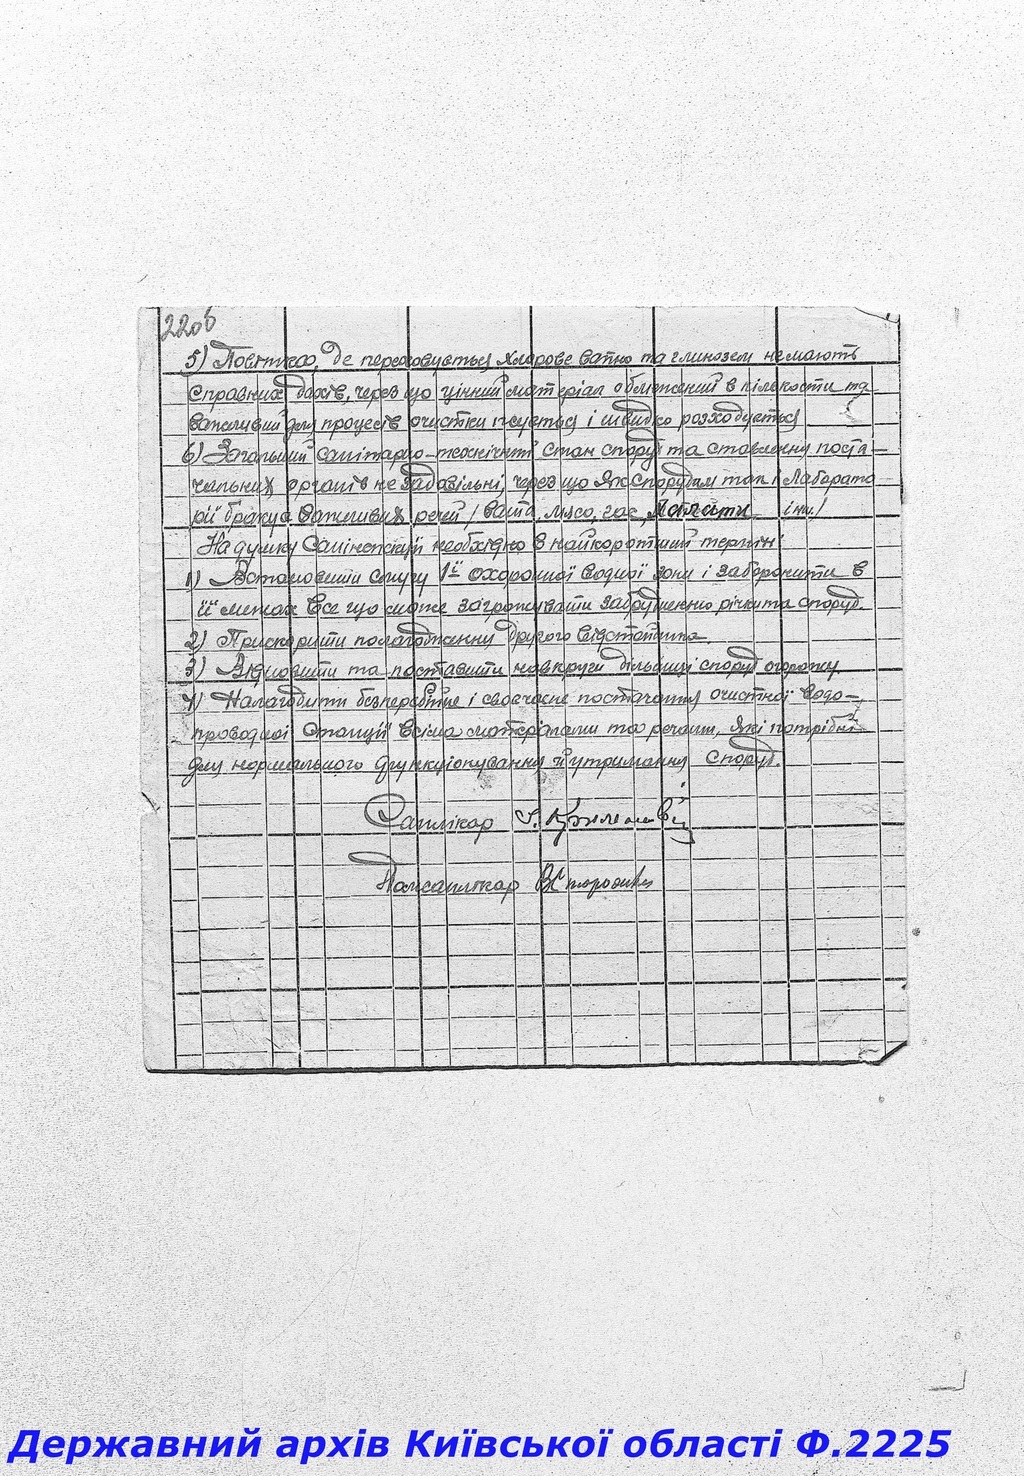 220б
5) Повітках, де переховується хлорове вапно та глинозем не мають
справних дахів, через що цінний матеріал обмежений в кількости та
важливий для процесів очистки псується і швидко розходується
6) Загальний санітарно-технічний стан споруд та ставлення поста-
чальних органів не задовільні, через що як спорудам так і Лаборато
рії бракує важливих речей / вата, мясо, газ, халати інш./
На думку Санінспекції необхідно в найкоротший термін:
1) Встановити смугу 1ї охоронної водної зони і заборонити в
її межах все що може загрожувати забрудненню річки та споруд.
2) Прискорити полагодження другого відстійника.
3) Відновити та поставити навкруги дільниці споруд огорожу
4) Налагодити безперебійне і своєчасне постачання очистної водо-
проводної станції всіма матеріалами та речами, які потрібні
для нормального функціонування й утримання споруд.
Санлікар
Помсанлікар
Державний архів Київської області Ф.2225